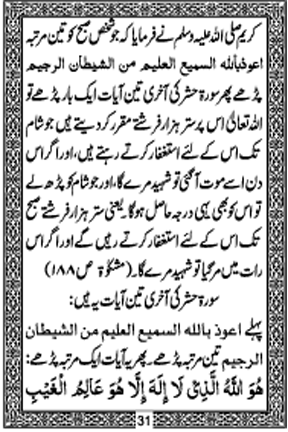 کریم صلی اللہ علیہ وسلم نے فرمایا کہ جو شخص صبح کو تین مرتبہ
اعوذ باللہ السمیع العلیم من الشیطان الرجیم
پڑھے پھر سورۃ حشر کی آخری تین آیات ایک بار پڑھے تو
اللہ تعالیٰ اس پر ستر ہزار فرشتے مقرر کر دیتے ہیں جو شام
تک اس کے لئے استغفار کرتے رہتے ہیں، اور اگر اس
دن اسے موت آگئی تو شہید مرے گا، اور جو شام کو پڑھ لے
تو اس کو بھی یہی درجہ حاصل ہوگا۔ یعنی ستر ہزار فرشتے صبح
تک اس کے لئے استغفار کرتے رہیں گے اور اگر اس
رات میں مر گیا تو شہید مرے گا۔ (مشکوٰۃ ص ۱۸۸)
سورۃ حشر کی آخری تین آیات یہ ہیں:
پہلے اعوذ باللہ السمیع العلیم من الشیطان
الرجیم تین مرتبہ پڑھے۔ پھر یہ آیات ایک مرتبہ پڑھے:
هُوَ اللّٰهُ الَّذِیْ لَا إِلٰهَ إِلَّا هُوَ عَالِمُ الْغَیْبِ
31